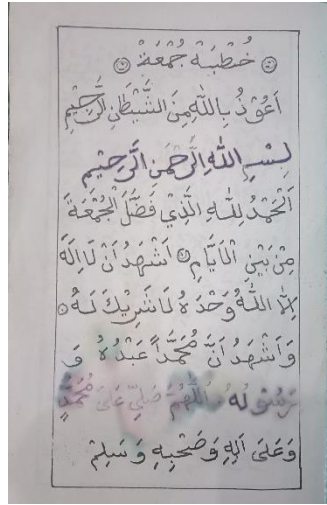 خُطْبَةُ جُمُعَةْ
اَعُوْذُ بِاللّٰهِ مِنَ الشَّيْطَانِ الرَّجِيْمِ
بِسْمِ اللّٰهِ الرَّحْمَنِ الرَّحِيْمِ
اَلْحَمْدُ لِلّٰهِ الَّذِيْ فَضَّلَ الْجُمُعَةَ
مِنْ بَيْنِ الْاَيَّامِ اَشْهَدُ اَنْ لَا اِلَهَ
اِلَّا اللّٰهُ وَحْدَهُ لَا شَرِيْكَ لَهُ
وَاَشْهَدُ اَنَّ مُحَمَّدًا عَبْدُهُ وَ
رَسُوْلُهُ اَللّٰهُمَّ صَلِّيْ عَلَى مُحَمَّدٍ
وَعَلَى اَلِهِ وَصَحْبِهِ وَسَلِّمْ